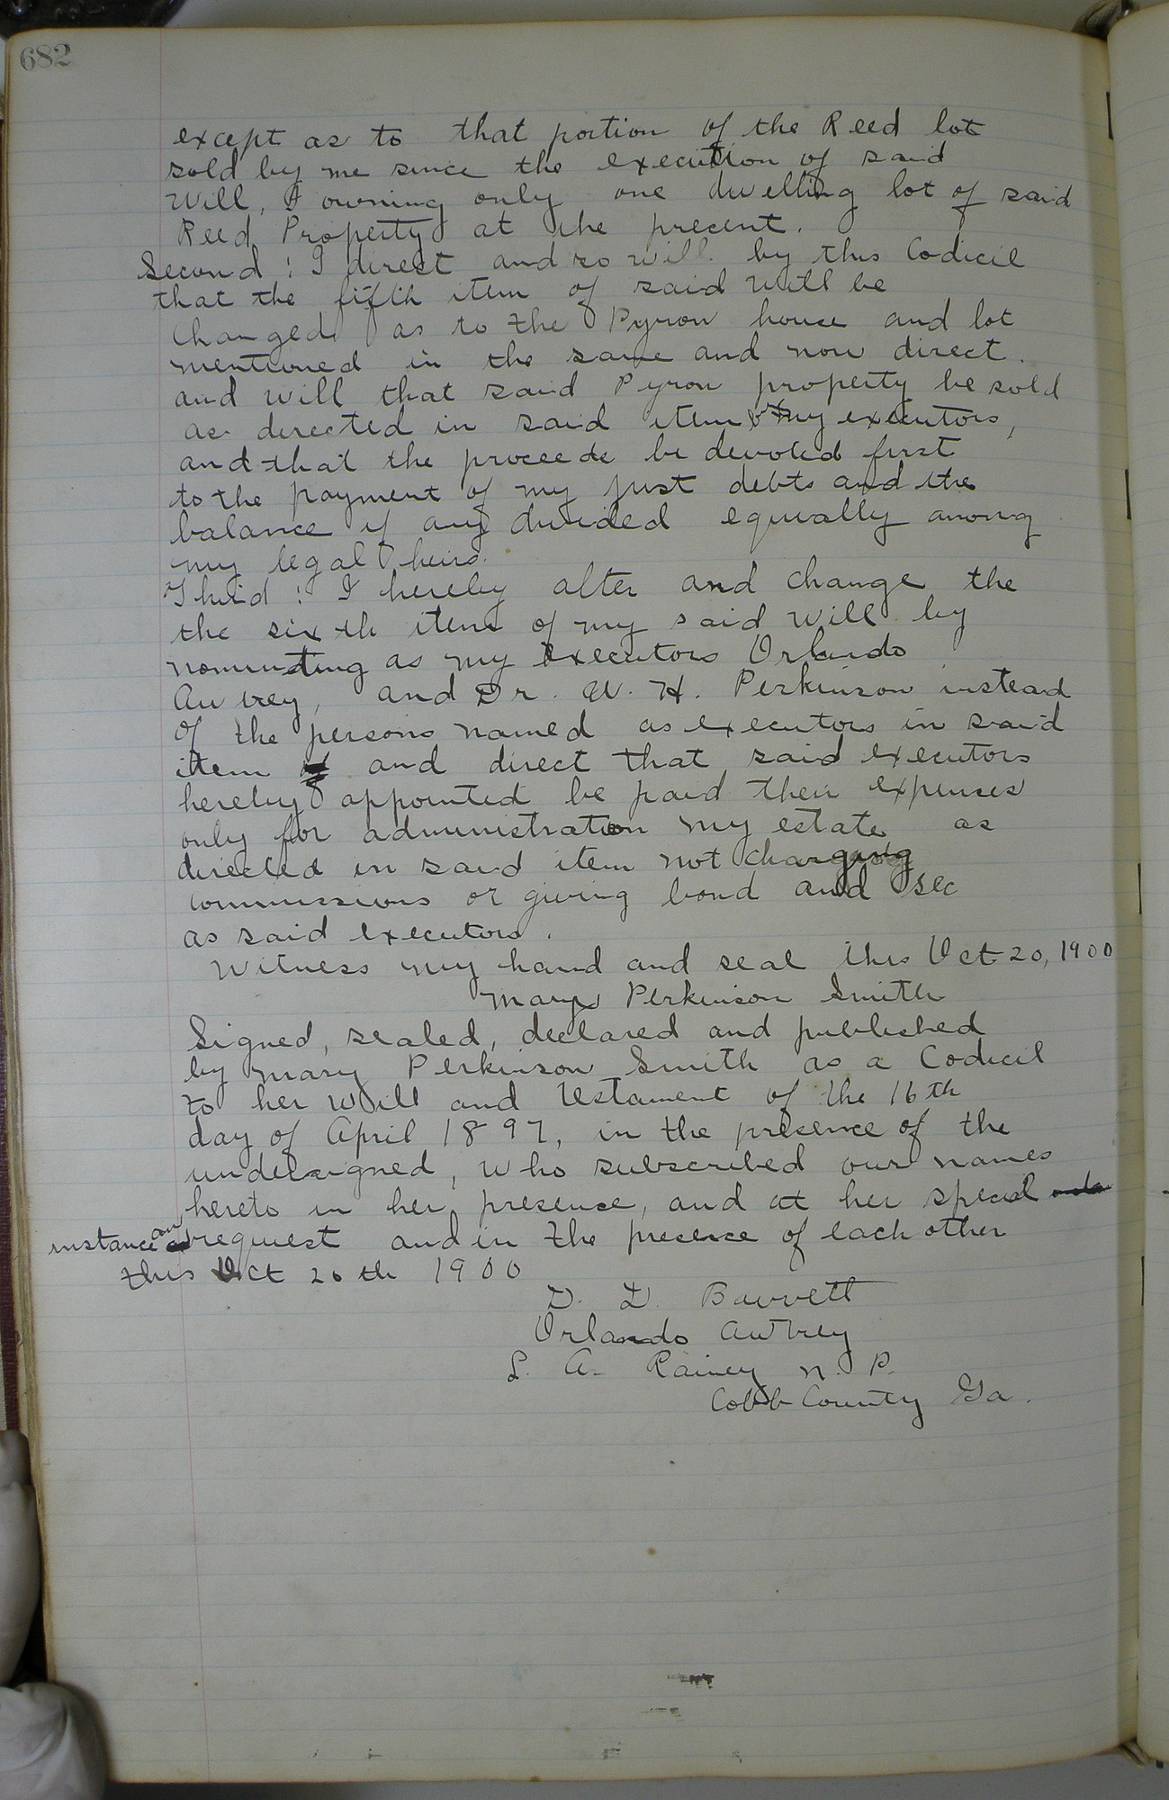 682
except as to that portion of the Reed lot
sold by me since the execution of said
Will, I owning only one dwelling lot of said
Reed Property at the precent.
Second: I direct and so will by this Codicil
that the fifth item of said Will be
Changed as to the Pyron house and lot
mentioned in the same and now direct.
and will that said Pyron property be sold
as directed in said item by my executors,
and that the proceeds be devoted first
to the payment of my just debts and the
balance if any divided equally among
my legal heirs.
Third: I hereby alter and change the
the sixth item of my said Will by
nominating as my Executors Orlando
Awtrey, and Dr. W. H. Perkinson instead
of the persons named as executors in said
item and direct that said executors
hereby appointed be paid their expenses
only for administration my estate as
directed in said item not charging
commissions or giving bond and sec
as said executors.
Witness my hand and seal this Oct 20, 1900
Mary Perkinson Smith
Signed, sealed, declared and published
by Mary Perkinson Smith as a Codicil
to her Will and Testament of the 16th
day of April 1897, in the presence of the
undersigned, who subscribed our names
hereto in her presence, and at her special
instance an request and in the presence of each other
this Oct 20th 1900
D. D. Barrett
Orlando Awtrey
L. A. Rainey N. P.
Cobb County Ga.